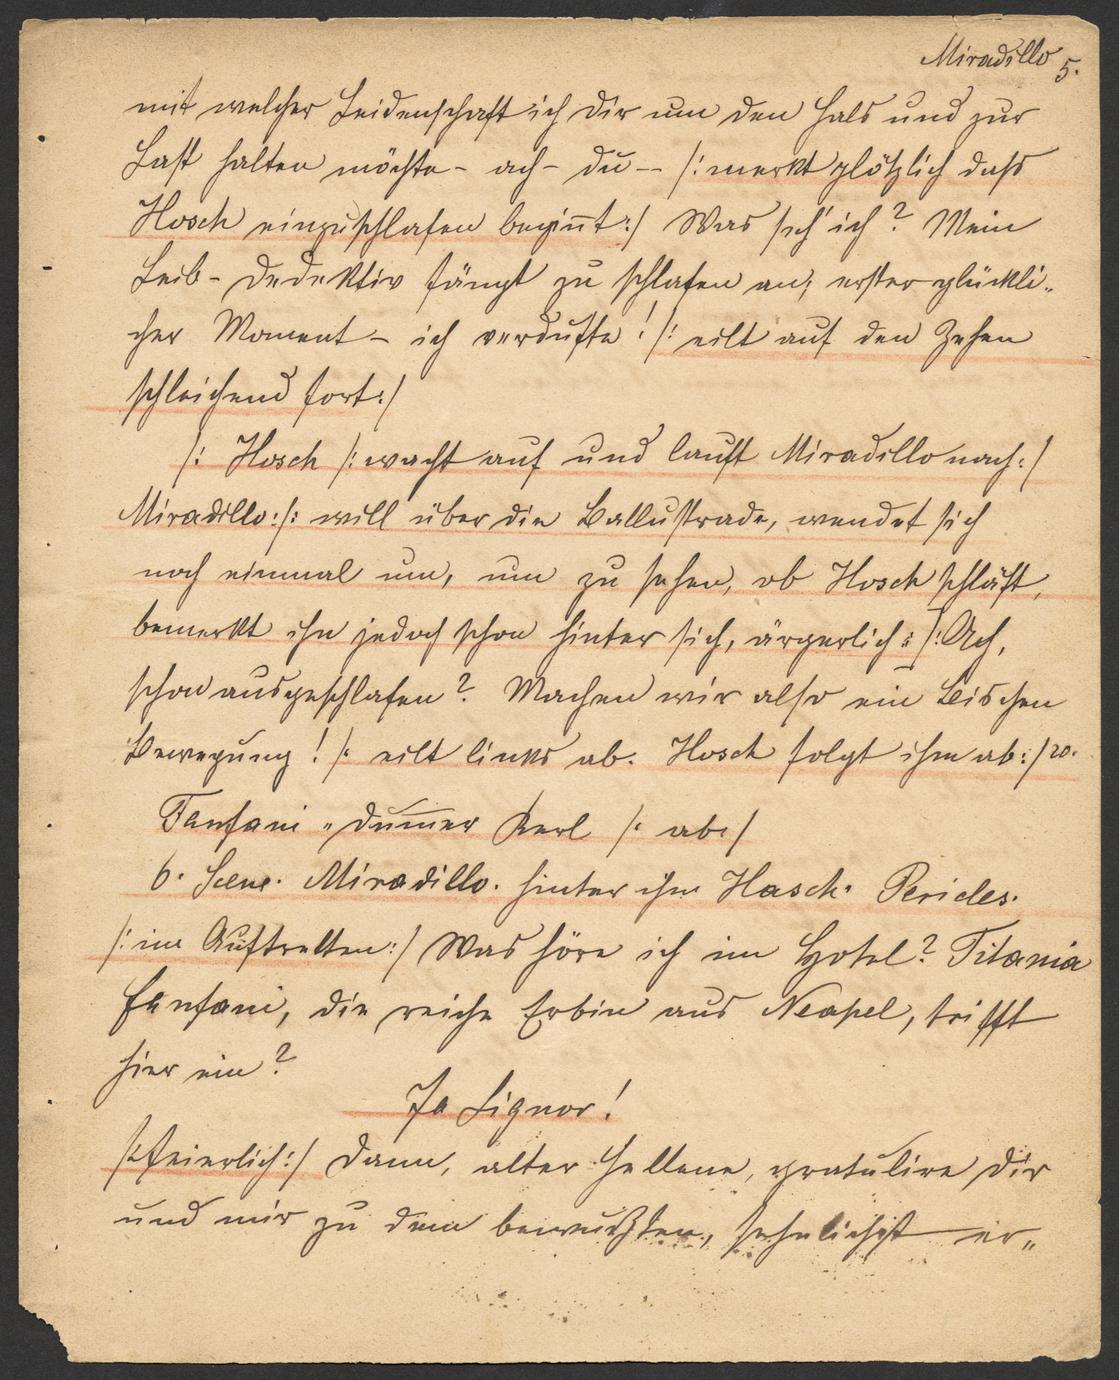 Miradillo 5.
mit welcher Leidenschaft ich dir um den Hals und zur
Last halten möchte - ach - du -- /: merkt plötzlich dass
Hosch einzuschlafen begin̅t :/ Was seh' ich? Mein
Leib - Dedektiv fängt zu schlafen an; erster glückli„
cher Moment - ich verdufte! /: eilt auf den Zehen
schleichend fort :/
/: Hosch /: wacht auf und lauft Miradillo nach :/
Miradillo: /: will über die Ballustrade, wendet sich
noch einmal um, um zu sehen, ob Hosch schläft,
bemerkt ihn jedoch schon hinter sich, ärgerlich :/: Ach,
schon ausgeschlafen? Machen wir also ein Bischen
Bewegung! /: eilt links ab. Hosch folgt ihm ab :/ 20.
Fanfani „ dum̅er Kerl /: ab :/
6. Scene. Miradillo. hinter ihm Hasch. Pericles.
/: im Auftretten :/ Was höre ich im Hotel? Titania
Fanfani, die reiche Erbin aus Neapel, trifft
hier ein?
Ja Signor!
/: feierlich :/ Dann, alter Hellene, gratulire dir
und mir zu dem bewußten, sehnlichst er„